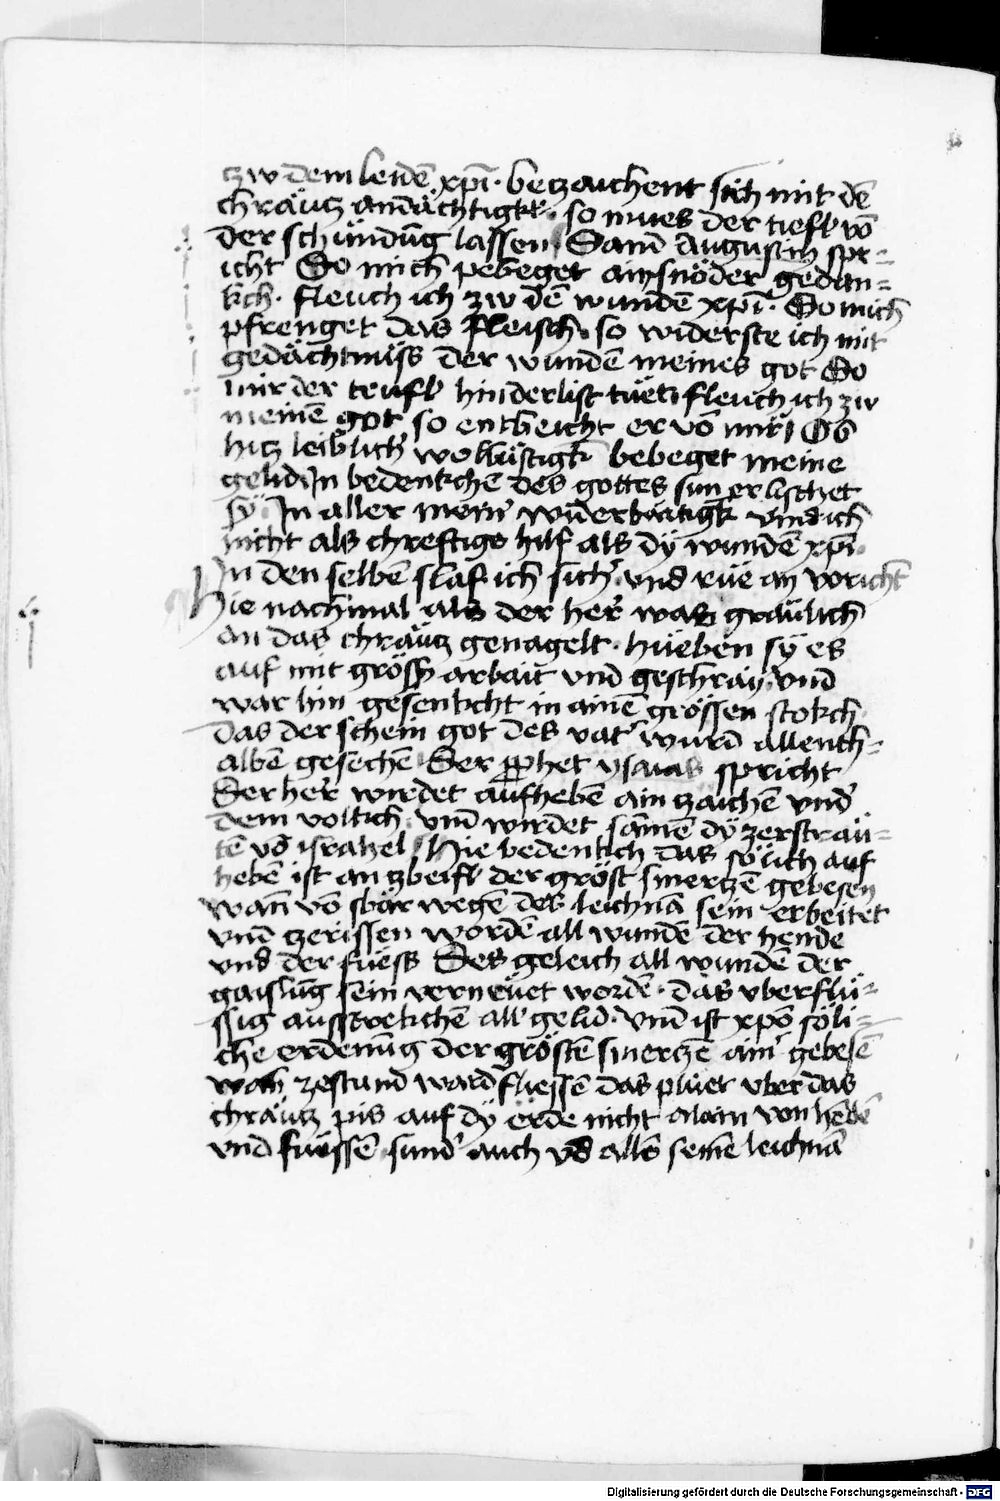 zw dem leidē xpī · betzaichent sich mit dē
chräutz andächtigkl · so mues der tiefl vō
der schündūg lassen Sand Augustin spr=
icht So mich pebeget ain snöder gedan=
kch · fleuch ich zw dē wundē xpī · So mich
pfrenget das fleisch · so widerste ich mit
gedächtnüss der wundē meines got So
mir der teufl hinderlist tuet fleuch ich zw
meinē got so entbeicht er vō mir Ob
hitz leiblich' wollustigk bebeget meine
gelid In bedenkchē des gottes sun erlischet
sÿ In aller mein' widerbratigk vind ich
nicht als chreftige hilf als dÿ wundē xpī ·
In den selbē slaf ich sich' · vnd rüe an voricht
Hie nachmal als der her' was gräulich
an das chräutz genagelt · hüeben sÿ es
auf mit gröss' arbait vnd geschraÿ · vnd
war hin gesenkcht in ainē grössen stokch
das der schein got des vat' wurd allenth=
albē gesechē Der pphet ysaias spricht
Der her' wirdet aufhebē ain tzaichē vnd'
dem volkch · vnd wirdet samē dÿ zerstraü=
tē vō israhel Hie bedenkch das sölich auf
hebē ist an tzbeifl der gröst smertzē gebesen
wan vō sbär wegē des leichnā sein erbeitet
vnd tzerissen wordē all wundē der hende
vnd der füess Des geleich all wundē der
gaislūg sein verneüet wordē · das vberflü=
ssig ausstrekchē all' gelid · vnd ist xpō söli=
che erdenūg der gröstē smertzē ain' gebesē
wan zestund ward fliessē das pluet vber das
chräutz pis auf dÿ erde nicht alain von hēdē
vnd füessē · sund' auch vō allē seinē leichnā
Digitalisierung gefördert durch die Deutsche Forschungsgemeinschaft - DFG